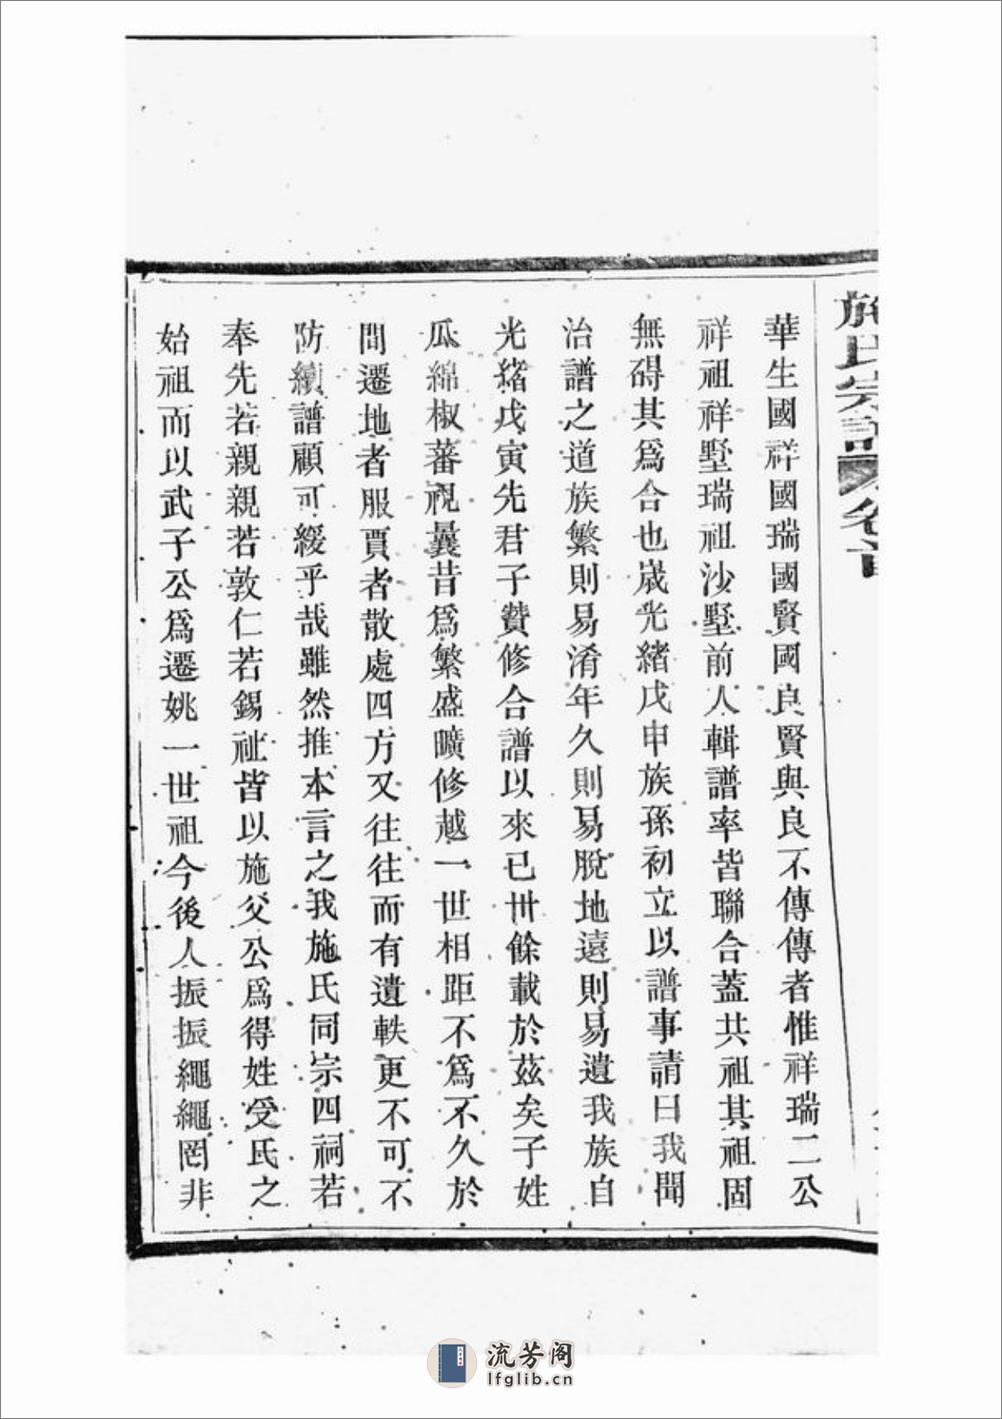 施氏宗譜 卷首
華生國祥國瑞國賢國良賢與良不傳傳者惟祥瑞二公
祥祖祥墅瑞祖沙墅前人輯譜率皆聯合蓋共祖其祖固
無碍其爲合也歲光緒戊申族孫初立以譜事請曰我聞
治譜之道族繁則易淆年久則易脫地遠則易遺我族自
光緒戊寅先君子贊修合譜以來已卅餘載於茲矣子姓
瓜綿椒蕃視曩昔爲繁盛曠修越一世相距不爲不久於
間遷地者服賈者散處四方又往往而有遺軼更不可不
防續譜顧可緩乎哉雖然推本言之我施氏同宗四祠若
奉先若親親若敦仁若錫祉皆以施父公爲得姓受氏之
始祖而以武子公爲遷姚一世祖今後人振振繩繩罔非
流芳阁
lfglib.cn